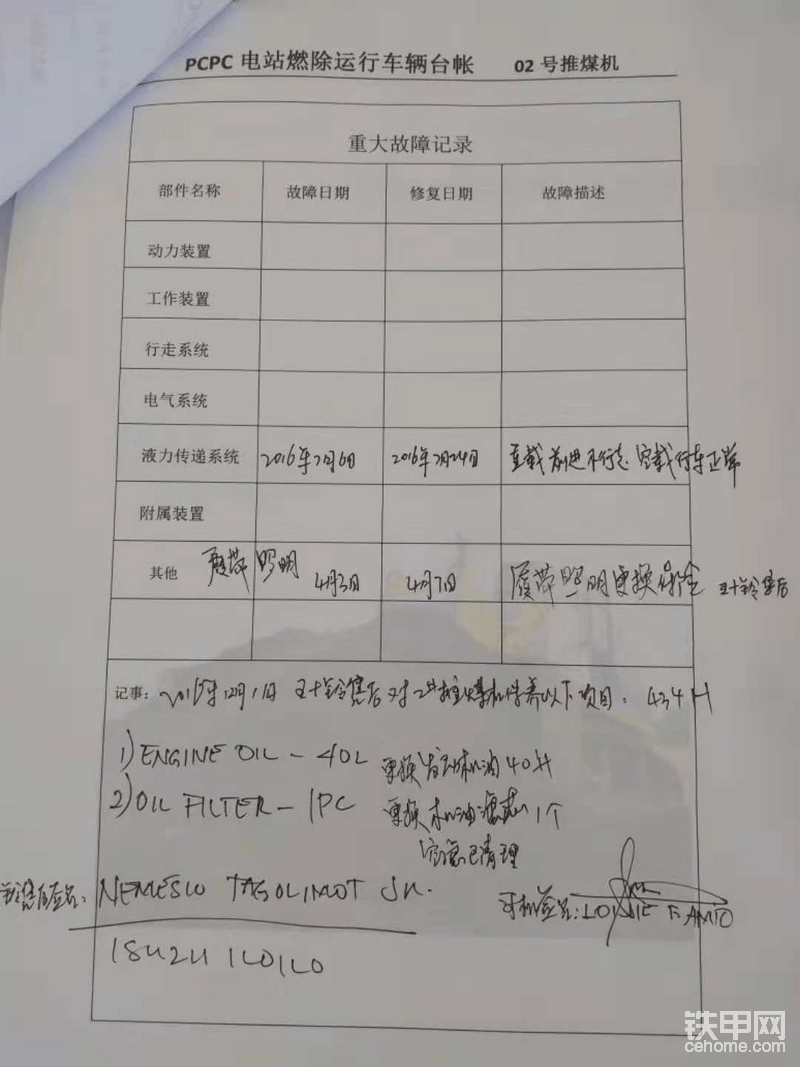 PCPC 电站燃除运行车辆台帐 02 号推煤机
重大故障记录
部件名称 故障日期 修复日期 故障描述
动力装置
工作装置
行走系统
电气系统
液力传递系统 2016年7月6日 2016年7月24日 重载前进不行走 空载行车正常
附属装置
其他 履带 照明 4月3日 4月7日 履带照明更换 五十铃售后
记事: 12月1日 五十铃售后对2#推煤机保养以下项目: 434H
1) ENGINE OIL - 40L 更换发动机油40升
2) OIL FILTER - 1PC 更换机油滤芯1个
空滤已清理
售后签名: NEMESIO TAGOLIMOT JR.
司机签名: LOUIE F. AMTO
ISUZU ILOILO
铁甲网
cehome.com